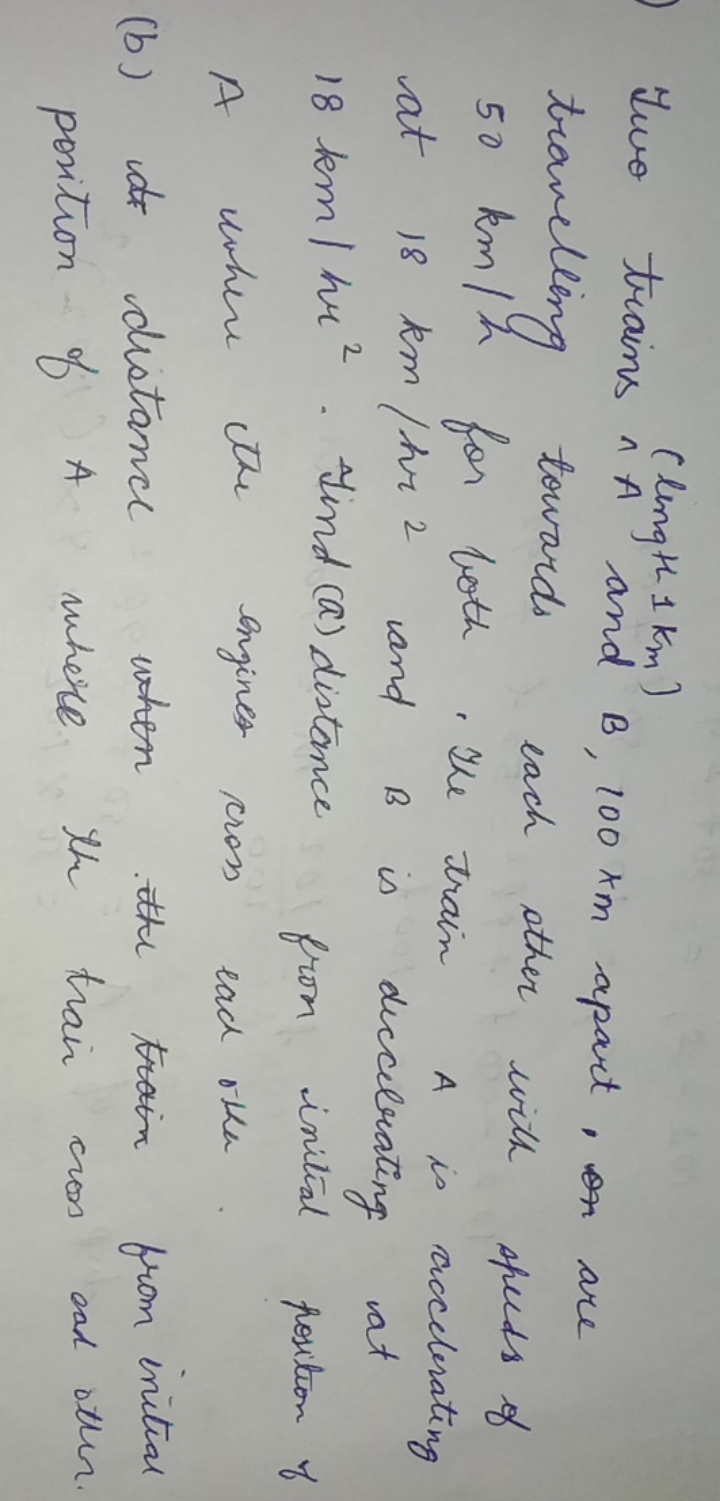 )
(length 1 km)
Two trains ^ A and B, 100 km apart, are
travelling towards each other with speeds of
50 km/h for both. The train A is accelerating
at 18 km/hr² and B is deccelerating at
18 km/hr². Find (a) distance from initial position of
A where the engines cross ead other.
(b) distance when the train from initial
position of A where the train cross ead other.